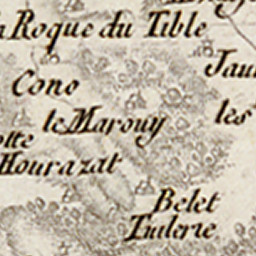 Roque du Tible
Jau
Cono
le Marouy
les
otte
Mourazat
Belet
Tuilerie